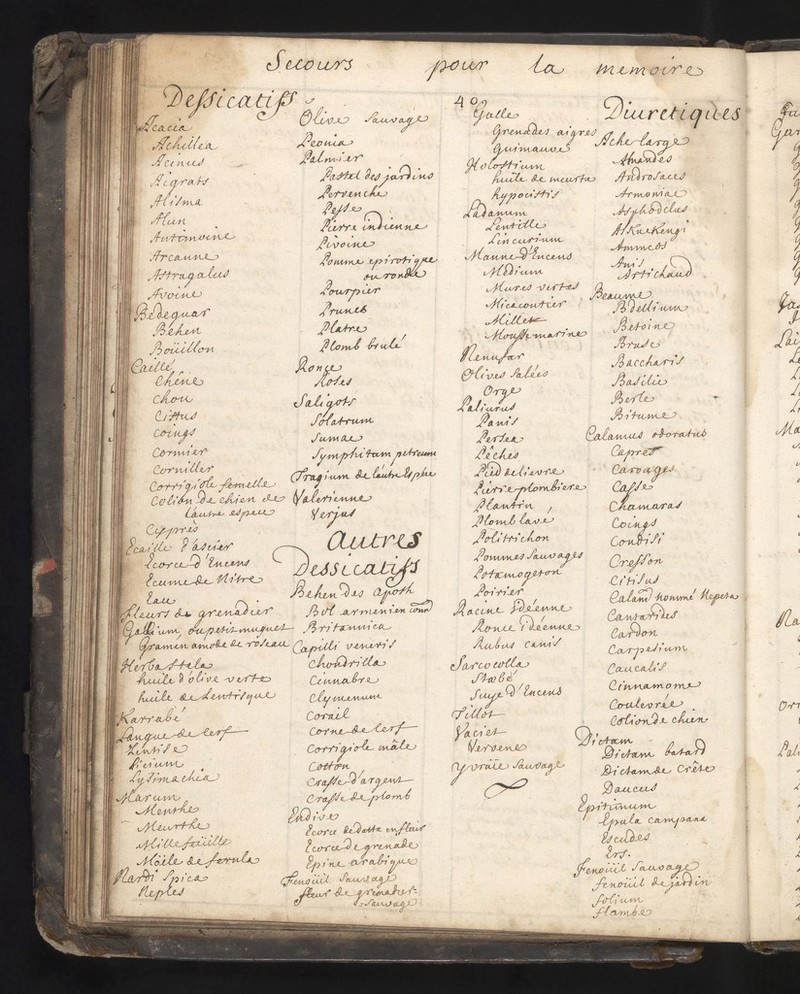 Secours pour la memoire
Dessicatifs
Acacia
Achillea
Acinus
Aigrats
Alisma
Alun
Antimoine
Arcanne
Astragalus
Avoine
Bedeguar
Béhen
Boüillon
Caille
Chêne
Chou
Cistus
Coings
Cormier
Corniller
Corrigiole femelle
Colion de chien de
lautre espece
Cyprès
Ecaille d'ascier
Ecorce d'Encens
Ecume de Nitre
Eau
Fleurs de grenadier
Gallium, ou petit muguet
Gramen amodé de roseau
Herba stela
huile d'olive verte
huile de Lentisque
Karrabé
Langue de Cerf
Lentise
Licium
Lysimachia
Marum
Menthe
Meurthe
Mille feüille
Moële de ferula
Nardi Spica
Neples
Olive Sauvage
Peonia
Palmier
Pastel des jardins
Pervenche
Pesse
Pierre indienne
Pivoine
Pomme epirotique
ou ronde
Pourpier
Prunes
Platre
Plomb brulé
Ronce
Roses
Saligots
Solatrum
Sumac
Symphitum petreum
Tragium de lautre Esphe
Valerienne
Verjus
Autres
Dessicatifs
Behen Das apoth
Bol armenien
Britannica
Capilli veneris
Chondrilla
Cinnabre
Clymenum
Corail
Corne de Cerf
Corrigiole mâle
Cotton
Crasse d'argent
Crasse de plomb
Endive
Ecorce de datte en fleur
Ecorce de grenade
Epine arabique
Fenoüil Sauvage
fleur de grenadier
Sauvage
40
Galle
Grenades aigres
Guimauve
Holostium
huile de meurta
hypocistis
Ladanum
Lentille
Lincurium
Manne d'Encens
Medium
Mures vertes
Micacoutier
Millet
Mousse marine
Nenufar
Olives Salées
Orge
Paliurus
Panis
Persea
Pêches
Pied de lievre
Pierre plombiere
Plantin
Plomb lavé
Politrichon
Pommes Sauvages
Potamogeton
Poirier
Racine Idéenne
Ronce idéenne
Rubus canis
Sarcocolla
Stœbé
Suye d'Encens
Tillot
Vaciet
Vervene
Yvraïe Sauvage
Diuretiques
Ache large
Amandes
Androsaces
Armoniac
Asphodelus
Alkuekengi
Ammeos
Anis
Artichaud
Beaume
Bdellium
Betoine
Brusc
Baccharis
Basilic
Berle
Bitume
Calamus odoratus
Capres
Carouges
Casse
Chamaras
Coings
Condisi
Cresson
Citisus
Calam nommé Nepeta
Cantarides
Cardon
Carpesium
Caucalis
Cinnamome
Coulevrée
Colion de chien
Dictam
Dictam batard
Dictam de Crète
Daucus
Epitimum
Epula campana
Escudes
Ers.
Fenoüil Sauvage
fenoüil de jardin
folium
flambe